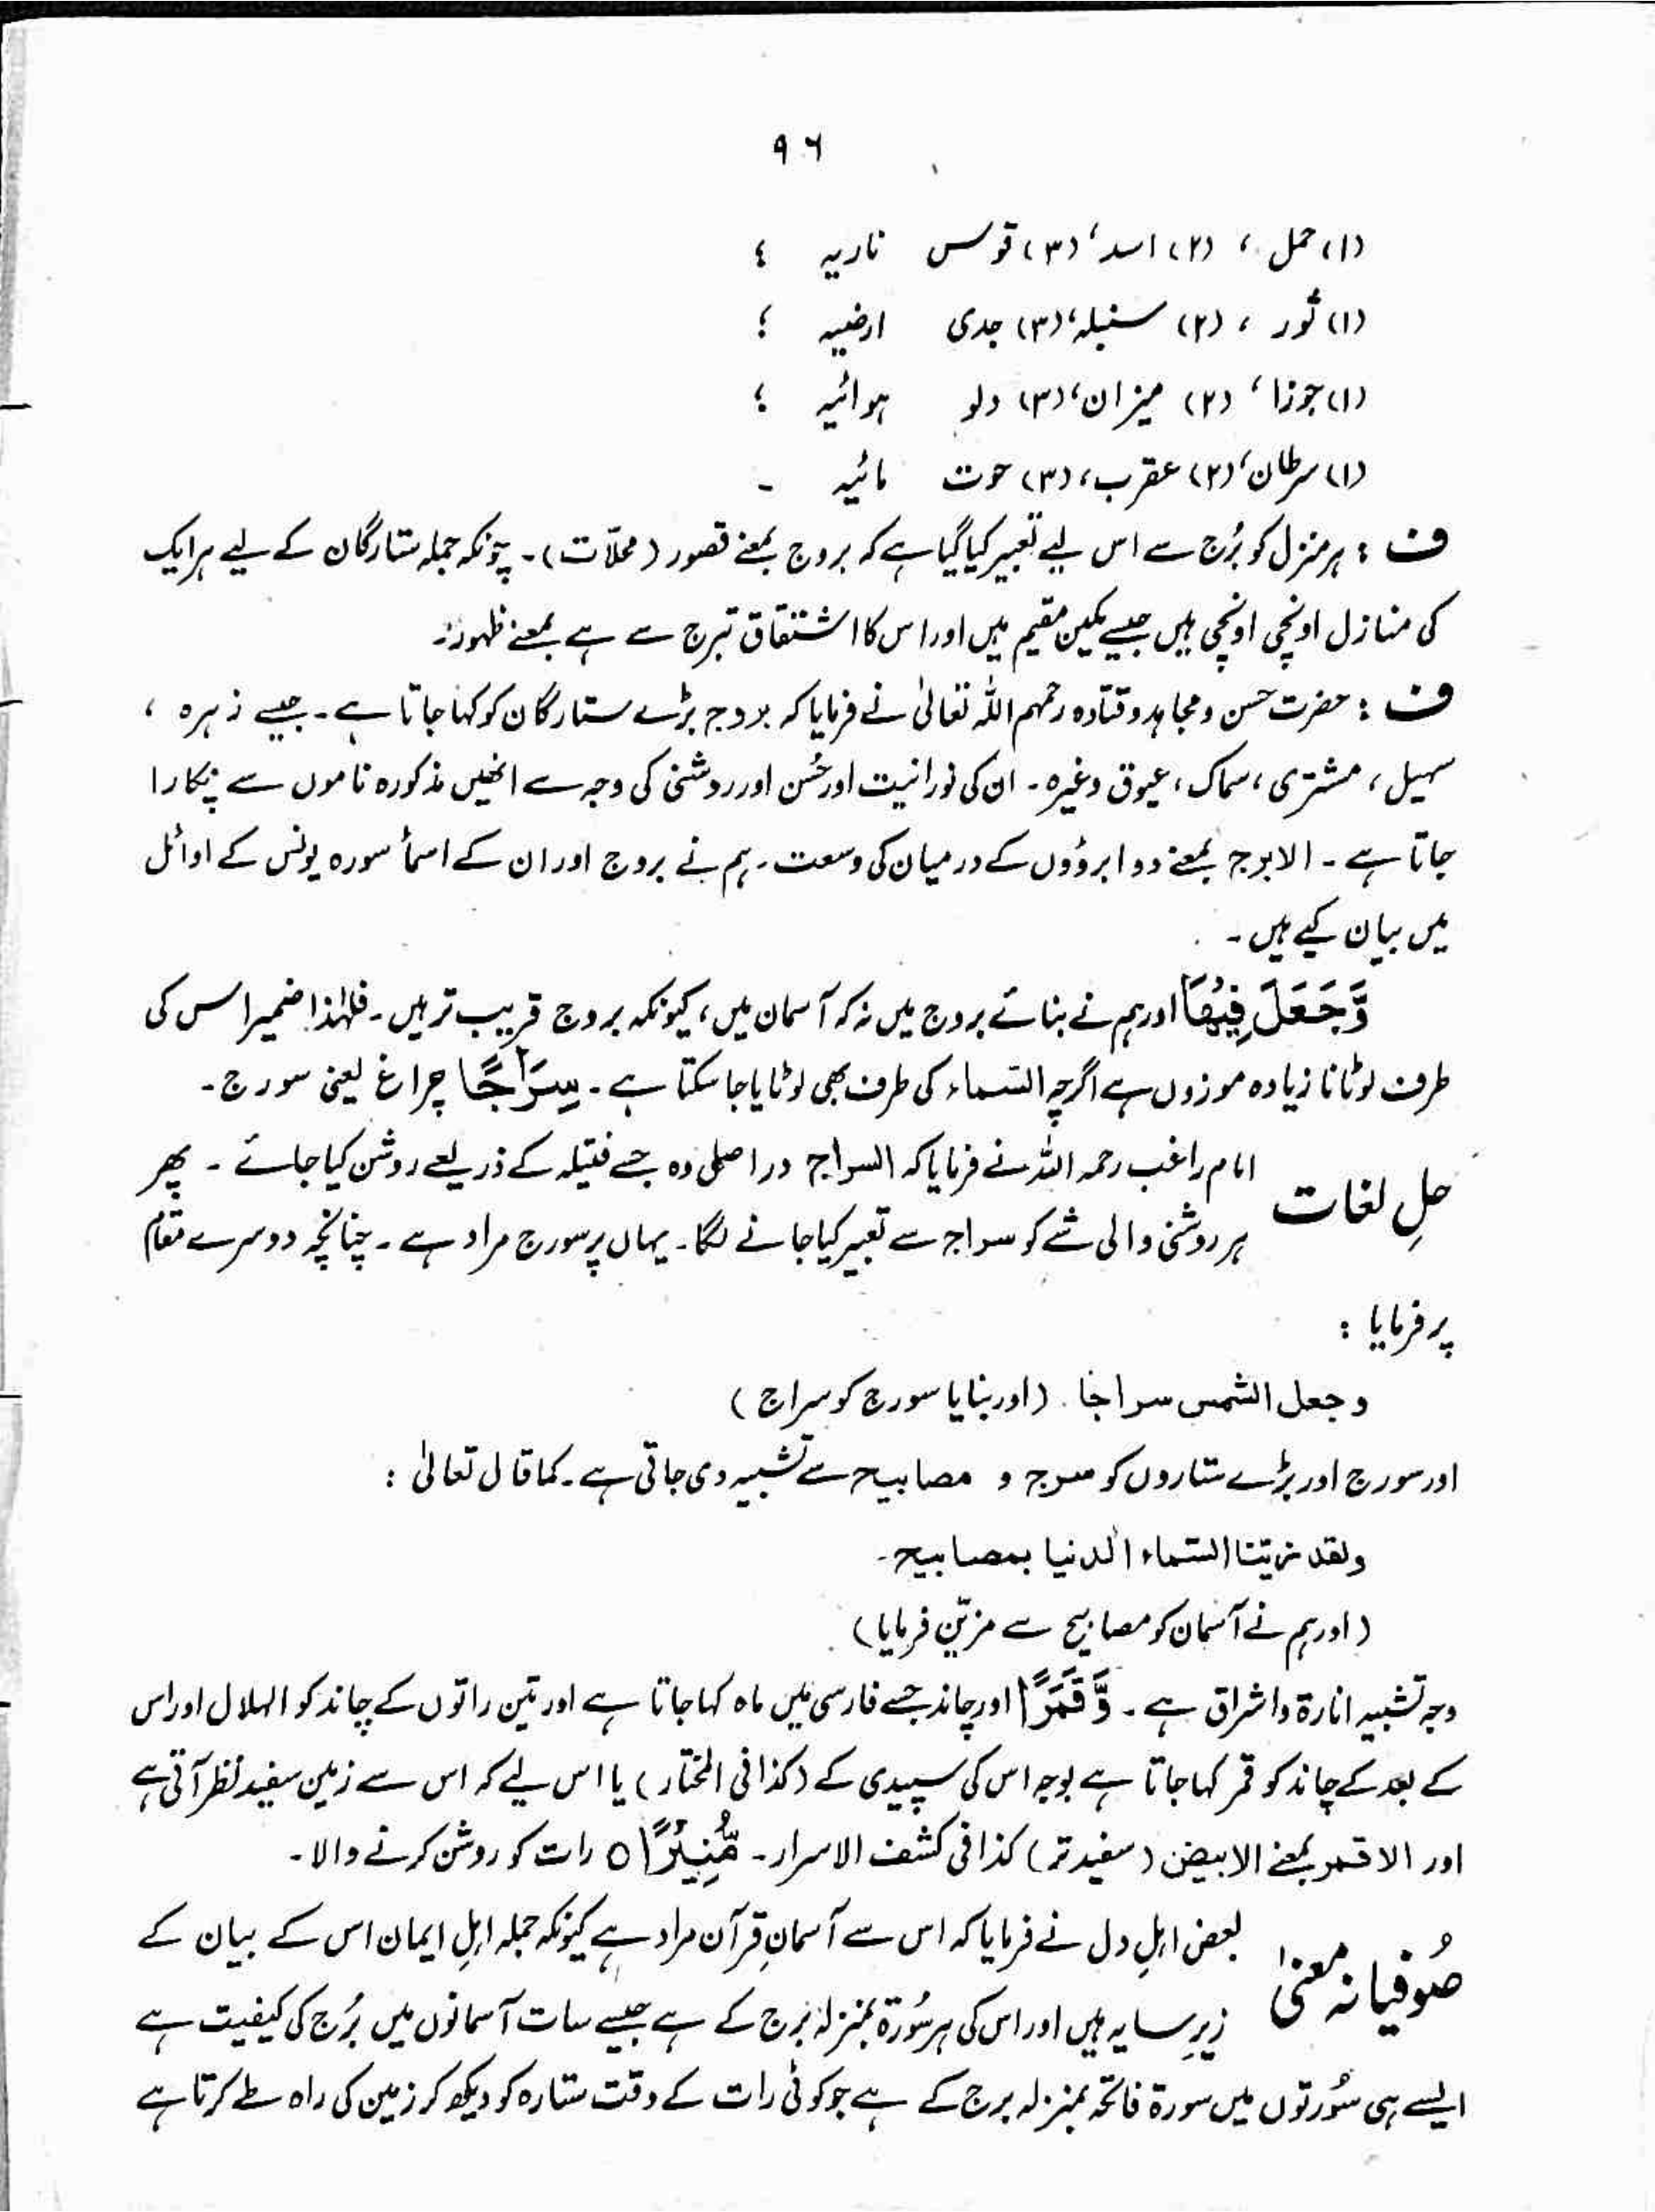 ۹۶
(۱) حمل ، (۲) اسد، (۳) قوس ناریہ ؛
(۱) ثور ، (۲) سنبلہ، (۳) جدی ارضیہ ؛
(۱) جوزا ، (۲) میزان، (۳) دلو ہوائیہ ؛
(۱) سرطان، (۲) عقرب، (۳) حوت مائیہ ۔
ف : ہر منزل کو بُرج سے اس لیے تعبیر کیا گیا ہے کہ بروج بمعنے قصور (محلّات)۔ چونکہ جملہ ستارگان کے لیے ہر ایک
کی منازل اونچی اونچی ہیں جیسے مکین مقیم ہیں اور اس کا اشتقاق تبرج سے ہے بمعنے ظہور۔
ف : حضرت حسن و مجاہد و قتادہ رحمہم اللہ تعالیٰ نے فرمایا کہ بروج بڑے ستارگان کو کہا جاتا ہے۔ جیسے زہرہ ،
سہیل ، مشتری ، سماک ، عیوق وغیرہ ۔ ان کی نورانیت اور حُسن اور روشنی کی وجہ سے انھیں مذکورہ ناموں سے پکارا
جاتا ہے ۔ الابرج بمعنے دو ابروؤں کے درمیان کی وسعت ۔ ہم نے بروج اور ان کے اسمأ سورہ یونس کے اوائل
میں بیان کیے ہیں ۔
وَّجَعَلَ فِیْهَا اور ہم نے بنائے بروج میں نہ کہ آسمان میں ، کیونکہ بروج قریب تر ہیں ۔ فلہٰذا ضمیر اس کی
طرف لوٹانا زیادہ موزوں ہے اگرچہ السّماء کی طرف بھی لوٹایا جا سکتا ہے ۔ سِرَاجًا چراغ یعنی سورج ۔
حلِ لغات امام راغب رحمہ اللہ نے فرمایا کہ السراج دراصل وہ جسے فتیلہ کے ذریعے روشن کیا جائے ۔ پھر
ہر روشنی والی شے کو سراج سے تعبیر کیا جانے لگا ۔ یہاں پر سورج مراد ہے ۔ چنانچہ دوسرے مقام
پر فرمایا :
و جعل الشمس سراجًا ۔ (اور بنایا سورج کو سراج)
اور سورج اور بڑے ستاروں کو سرج و مصابیح سے تشبیہ دی جاتی ہے ۔ کما قال تعالیٰ :
ولقد زیّنا السّماء الدنیا بمصابیح ۔
(اور ہم نے آسمان کو مصابیح سے مزیّن فرمایا)
وجہ تشبیہ انارۃ و اشراق ہے ۔ وَّ قَمَرًا اور چاند جسے فارسی میں ماہ کہا جاتا ہے اور تین راتوں کے چاند کو الہلال اور اس
کے بعد کے چاند کو قمر کہا جاتا ہے بوجہ اس کی سپیدی کے (کذا فی المختار) یا اس لیے کہ اس سے زمین سفید نظر آتی ہے
اور الاقمر بمعنے الابیض (سفید تر) کذا فی کشف الاسرار ۔ مُّنِیْرًا ○ رات کو روشن کرنے والا ۔
صُوفیانہ معنیٰ بعض اہلِ دل نے فرمایا کہ اس سے آسمانِ قرآن مراد ہے کیونکہ جملہ اہلِ ایمان اس کے بیان کے
زیرِ سایہ ہیں اور اس کی ہر سُورۃ بمنزلہ بُرج کے ہے جیسے سات آسمانوں میں بُرج کی کیفیت ہے
ایسے ہی سُورتوں میں سورۃ فاتحہ بمنزلہ برج کے ہے جو کوئی رات کے وقت ستارہ کو دیکھ کر زمین کی راہ طے کرتا ہے